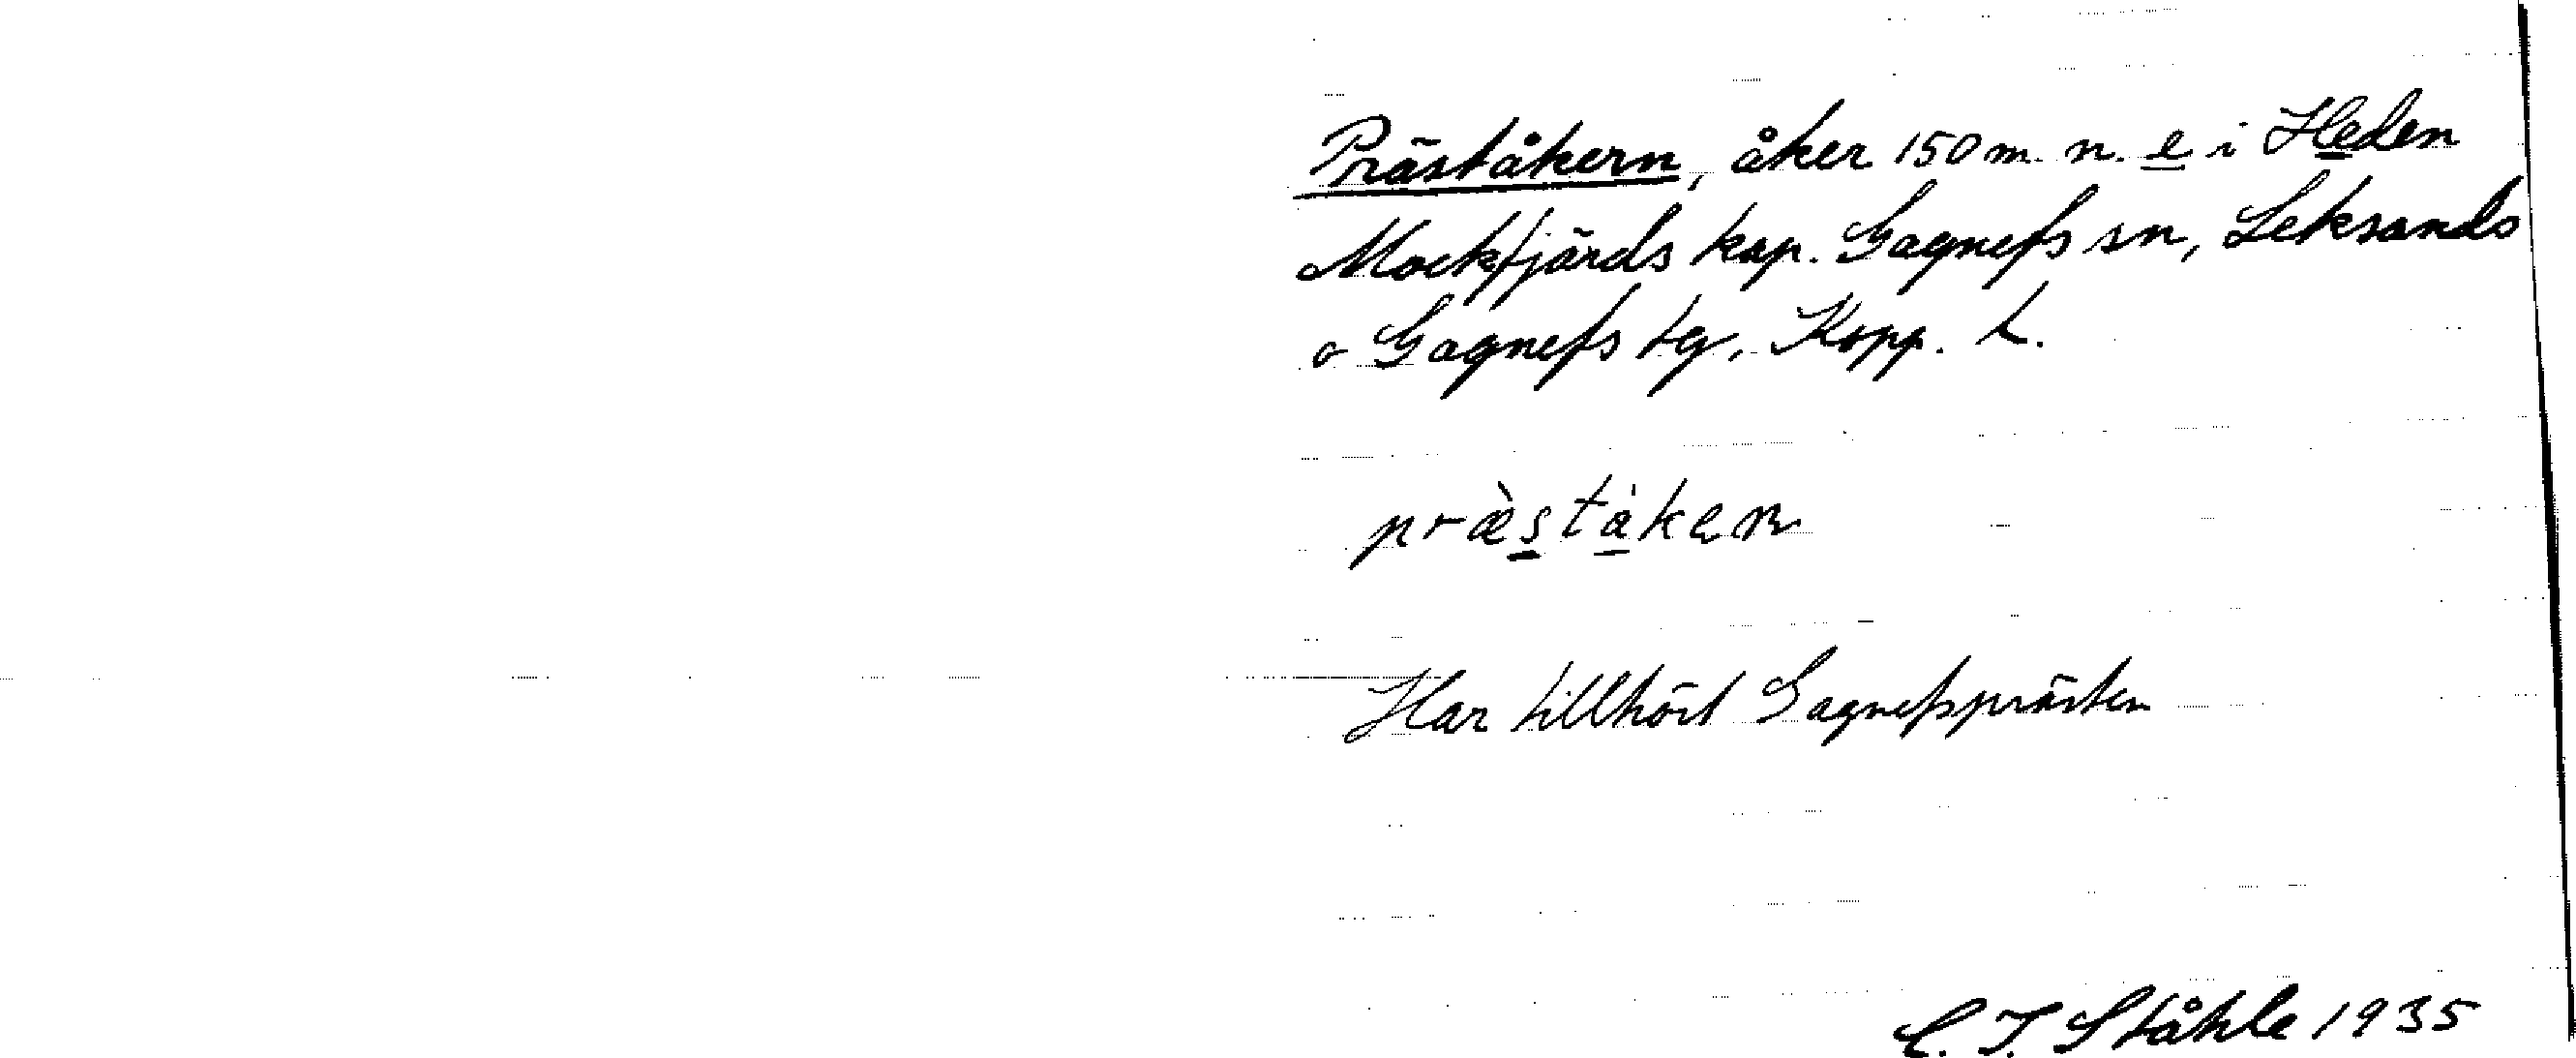 Präståkern, åker 150 m. n. e i Heden
Mockfjärds kap. Gagnefs sn, Leksands
o Gagnefs tg, Kopp. L.
præ̀stȧkeɳ
Har tillhört Gagnefsprästen
C. I. Ståhle 1935